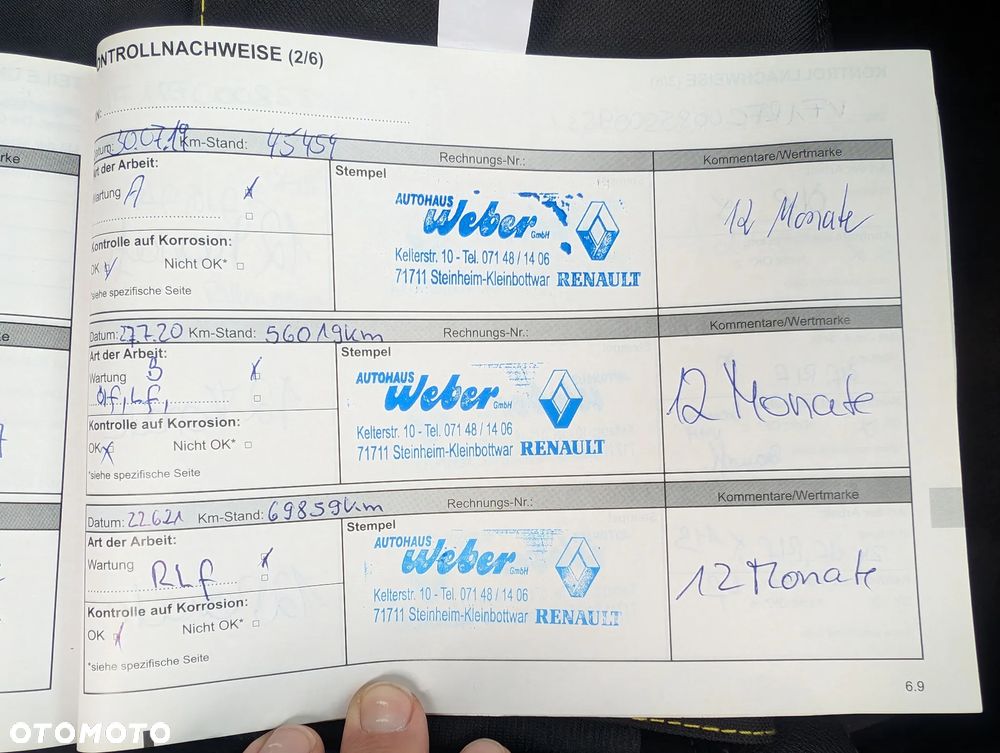 KONTROLLNACHWEISE (2/6)
Datum: 30.07.19 Km-Stand: 45454 Rechnungs-Nr.: Kommentare/Wertmarke
Art der Arbeit:
Wartung A
Kontrolle auf Korrosion:
OK Nicht OK*
*siehe spezifische Seite
Stempel
AUTOHAUS
Weber GmbH
Kelterstr. 10 - Tel. 071 48 / 14 06
71711 Steinheim-Kleinbottwar RENAULT
12 Monate
Datum: 27.7.20 Km-Stand: 56019km Rechnungs-Nr.: Kommentare/Wertmarke
Art der Arbeit:
Wartung B
Öf, Lf,
Kontrolle auf Korrosion:
OK Nicht OK*
*siehe spezifische Seite
Stempel
AUTOHAUS
Weber GmbH
Kelterstr. 10 - Tel. 071 48 / 14 06
71711 Steinheim-Kleinbottwar RENAULT
12 Monate
Datum: 22.6.21 Km-Stand: 69859km Rechnungs-Nr.: Kommentare/Wertmarke
Art der Arbeit:
Wartung
RLf
Kontrolle auf Korrosion:
OK Nicht OK*
*siehe spezifische Seite
Stempel
AUTOHAUS
Weber GmbH
Kelterstr. 10 - Tel. 071 48 / 14 06
71711 Steinheim-Kleinbottwar RENAULT
12 Monate
6.9
OTOMOTO